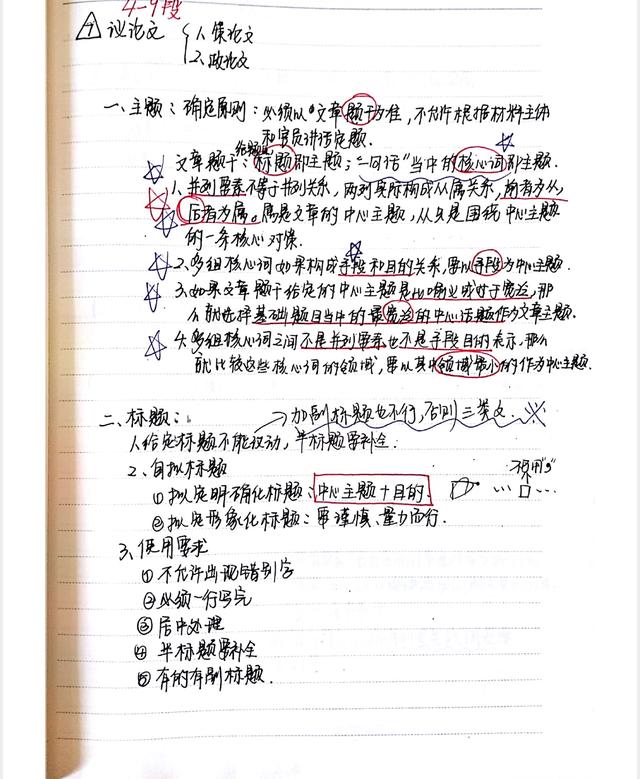 4-9段
7 议论文 { 1. 策论文
2. 政论文
一、主题:确定原则:必须以文章题干为准,不允许根据材料主体
和官员讲话定题.
文章题干:给标题的标题即主题;"一句话"当中的核心词即主题.
1. 并列要素不等于并列关系,两列实际构成从属关系,前者为从,
后者为属。属是文章的中心主题,从只是围绕中心主题
的一条核心对策.
2. 多组核心词如果构成手段和目的关系,要以手段为中心主题.
3. 如果文章题干给定的中心主题是 过于宽泛,那
么就选择基础题目当中的最宽泛的中心话题作为文章主题.
4. 多组核心词之间不是并列要素也不是手段目的表示,那么
就比较这些核心词的领域,要以其中领域最小的作为中心主题.
二、标题:
→加副标题也不行,否则三类文.※
1. 给定标题不能改动,半标题要补全.
2. 自拟标题
不可用
① 拟定明确化标题:中心主题+目的.
② 拟定形象化标题:要谨慎、量力而行.
3. 使用要求
① 不允许出现错别字
② 必须一行写完
③ 居中处理
④ 半标题要补全
⑤ 有的有副标题.